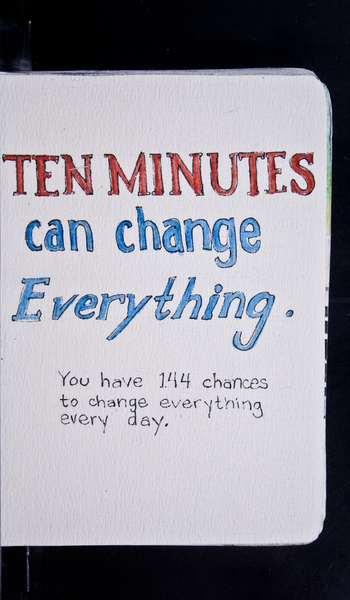 TEN MINUTES
can change
Everything.
You have 144 chances
to change everything
every day.